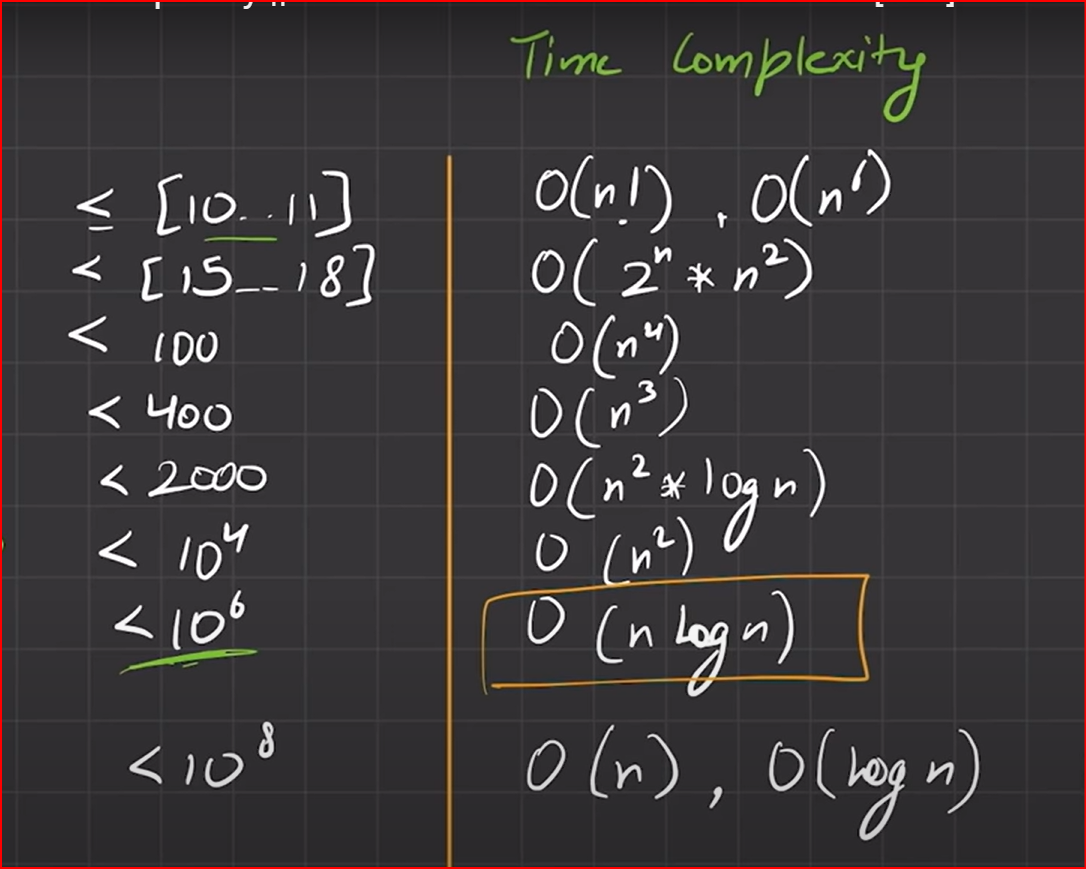 Time Complexity
≤ [10..11] O(n!), O(n⁶)
< [15--18] O(2ⁿ * n²)
< 100 O(n⁴)
< 400 O(n³)
< 2000 O(n² * log n)
< 10⁴ O(n²)
< 10⁶ O(n log n)
< 10⁸ O(n), O(log n)